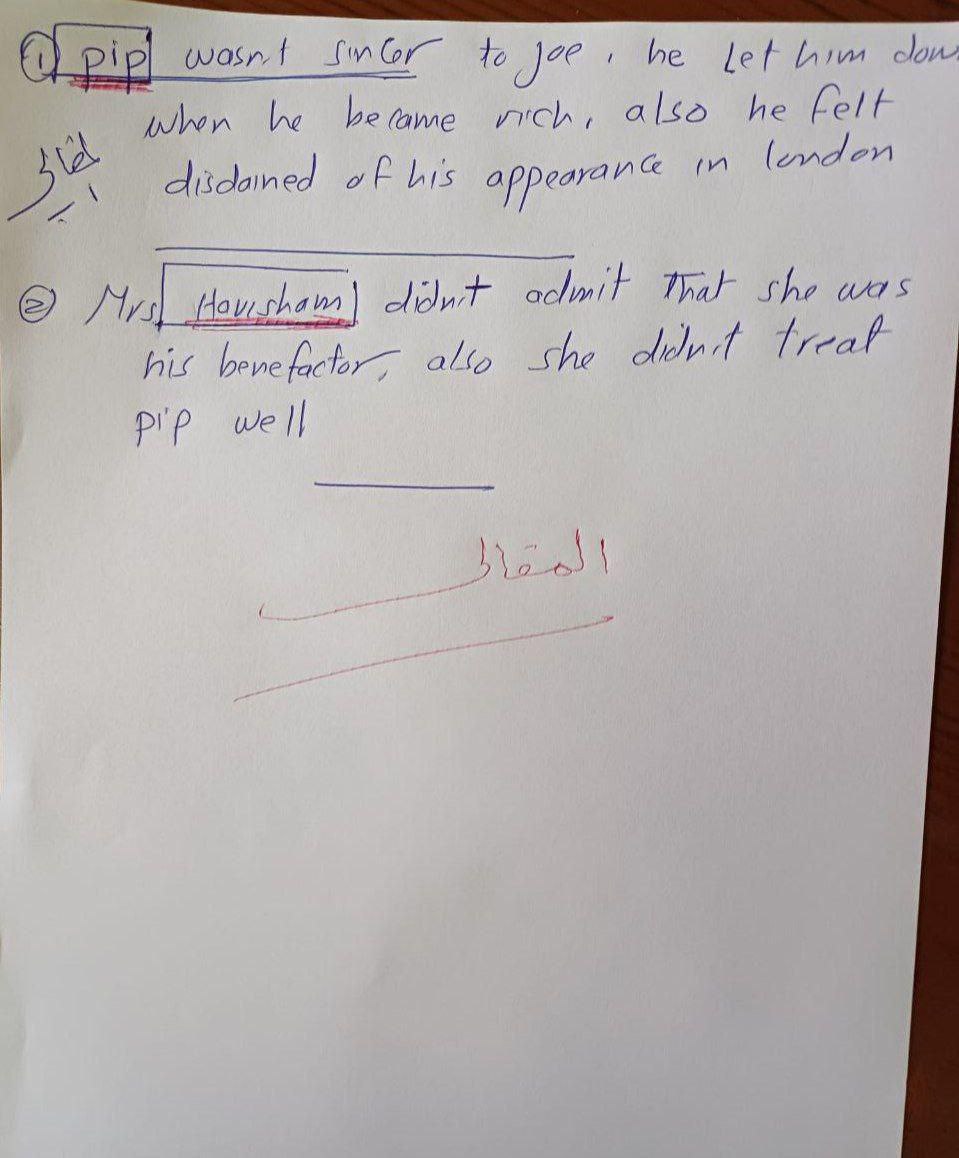 ① pip wasn't sincer to joe, he let him down
when he became rich, also he felt
disdained of his appearance in london
② Mrs Havisham didn't admit that she was
his benefactor, also she didn't treat
pip well
المقال